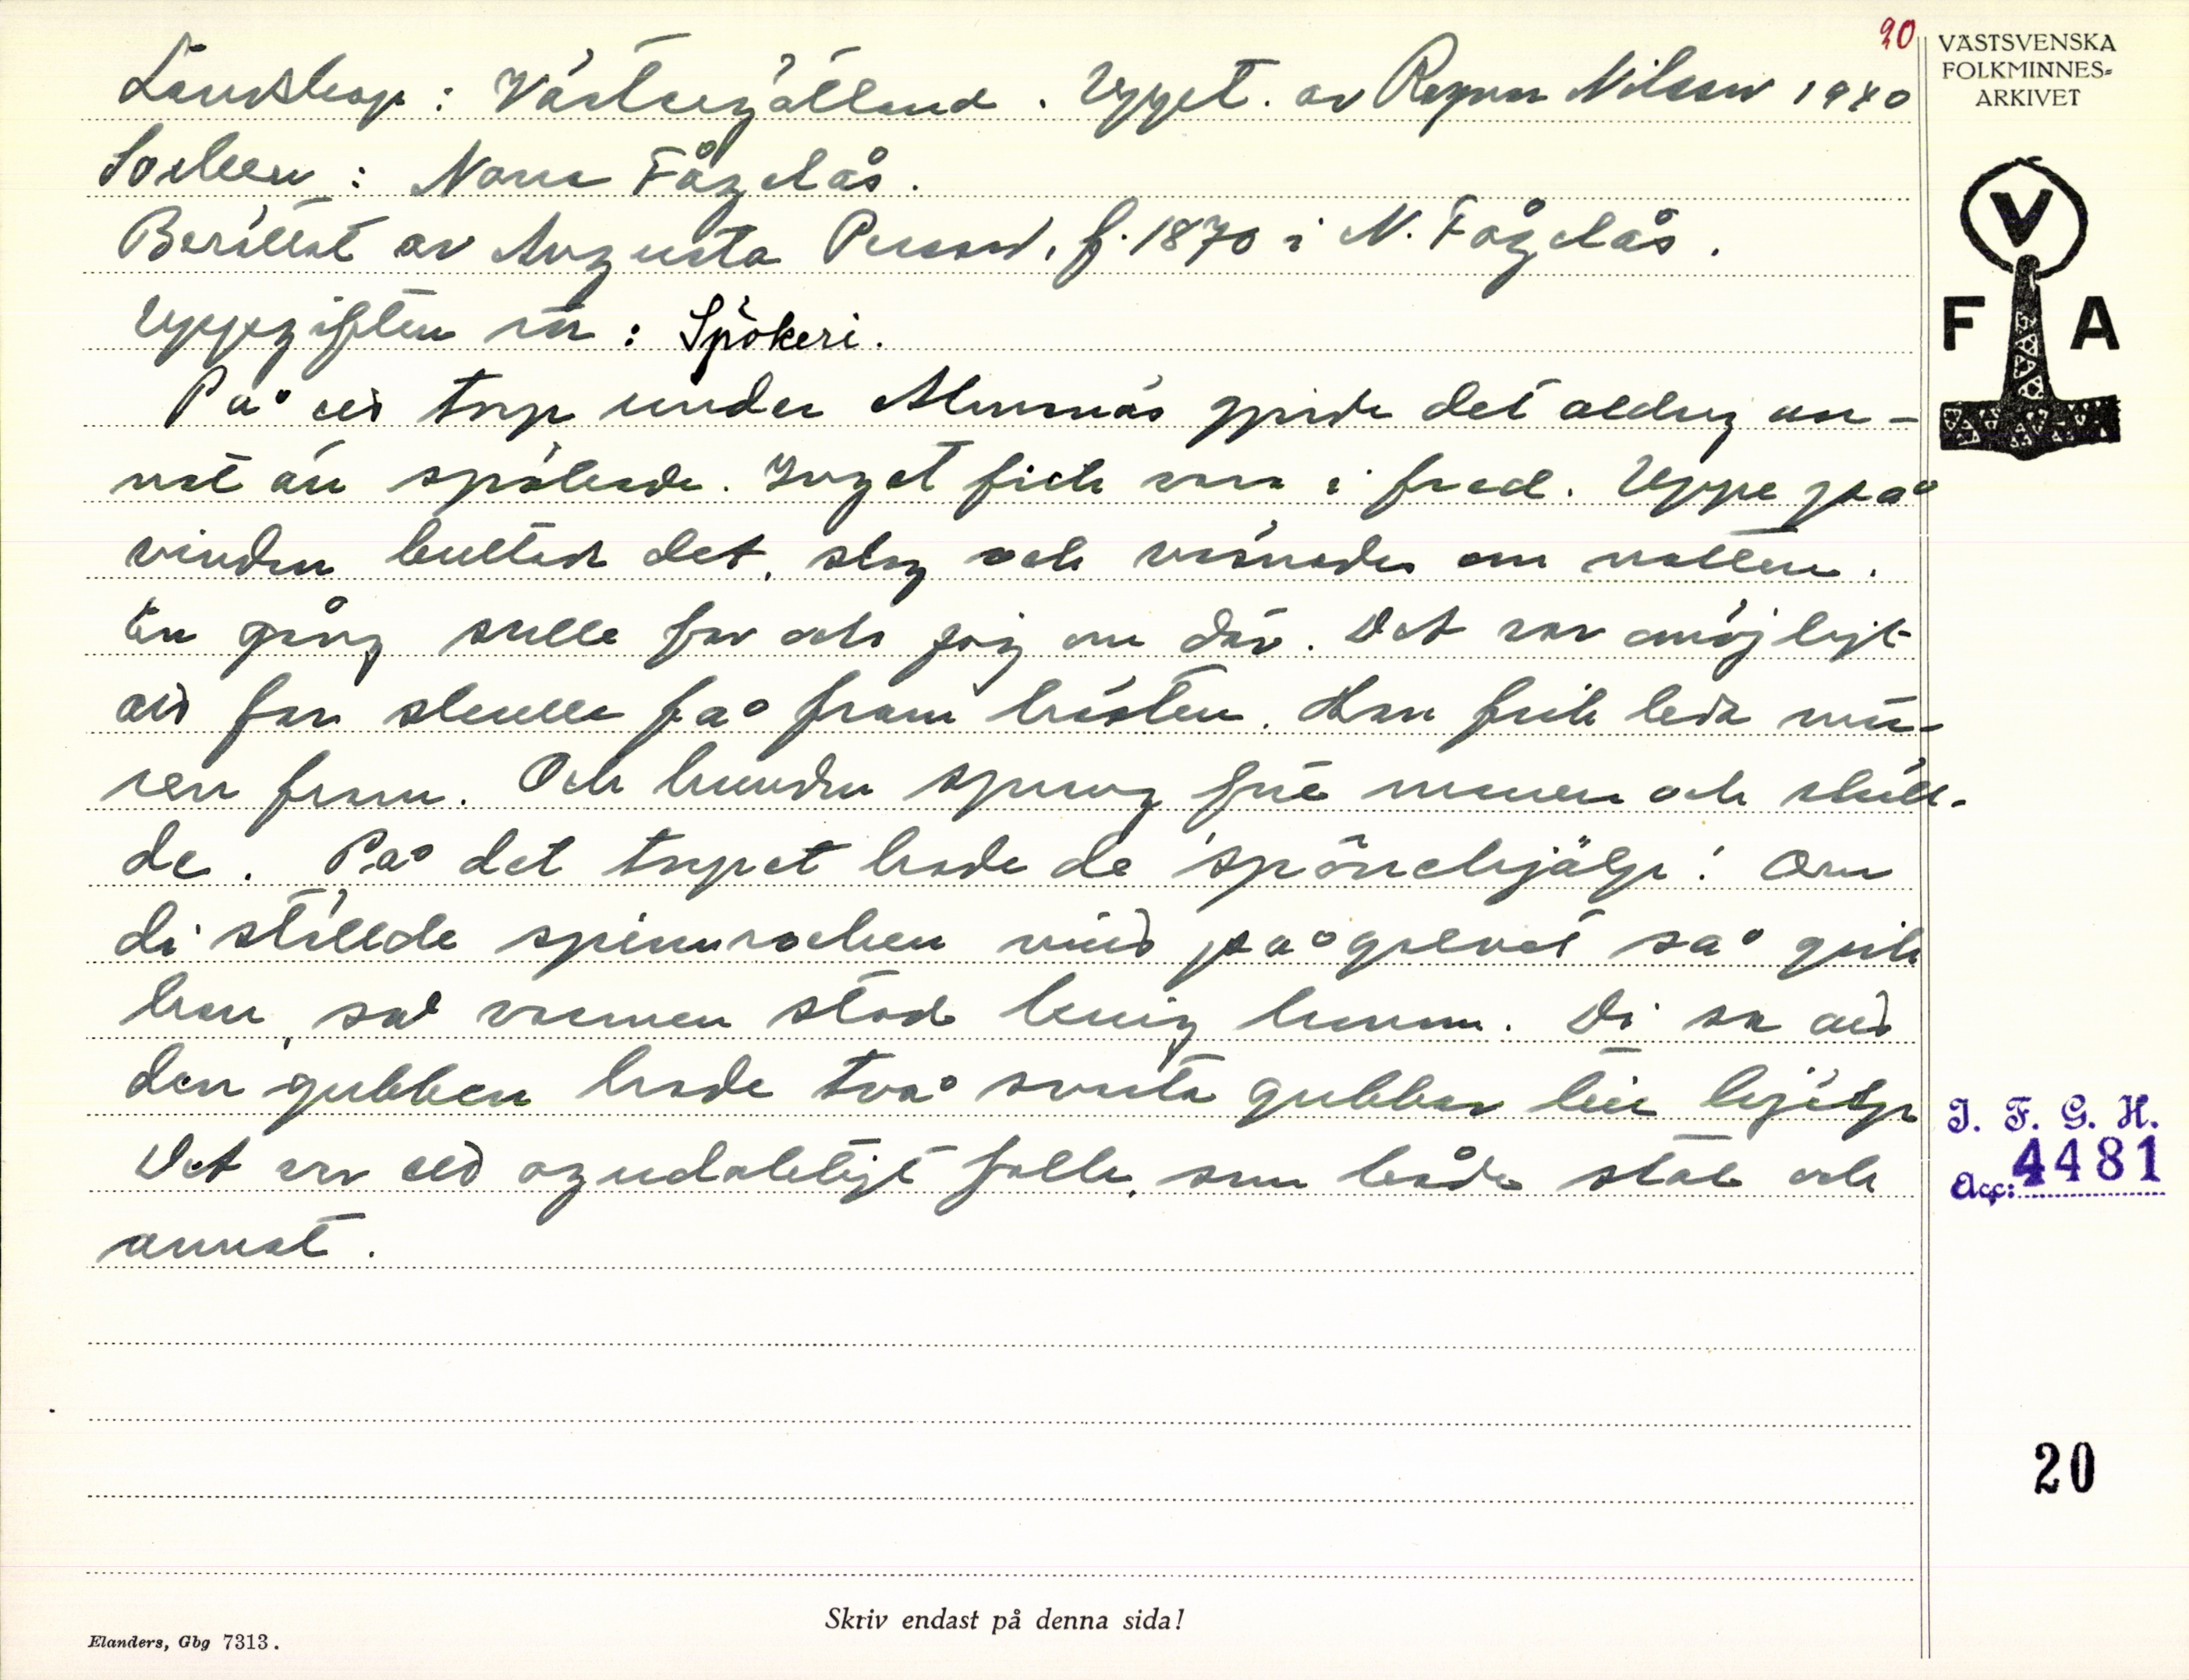 20
VÄSTSVENSKA
FOLKMINNES-
ARKIVET
Landskap: Västergötland. Uppt. av Ragnar Nilsson 1940
Socken: Norra Fågelås.
Berättat av Augusta Persson, f. 1870 i N. Fågelås.
Uppgiften rör: Spökeri.
V
F A
På ett torp under Almnäs gjorde det aldrig an-
nat än spökade. Inget fick vara i fred. Uppe på
vinden bultade det, slog och väsnades om natten.
En gång sulle far och jag om där. Det var omöjligt
att far skulle få fram hästen. Han fick leda mä-
ren fram. Och hunden sprang mellan och skäll-
de. På det torpet hade de 'spönehjälp'. Om
di ställde spinnrocken vid på golvet så gick
han, så varmen stod kring honom. Di sa att
den gubben hade två svarta gubbar till hjälp
Det var ett ogudaktigt folk, som både stal och
annat.
I. F. G. H.
Acc: 4481
20
Skriv endast på denna sida!
Elanders, Gbg 7313.